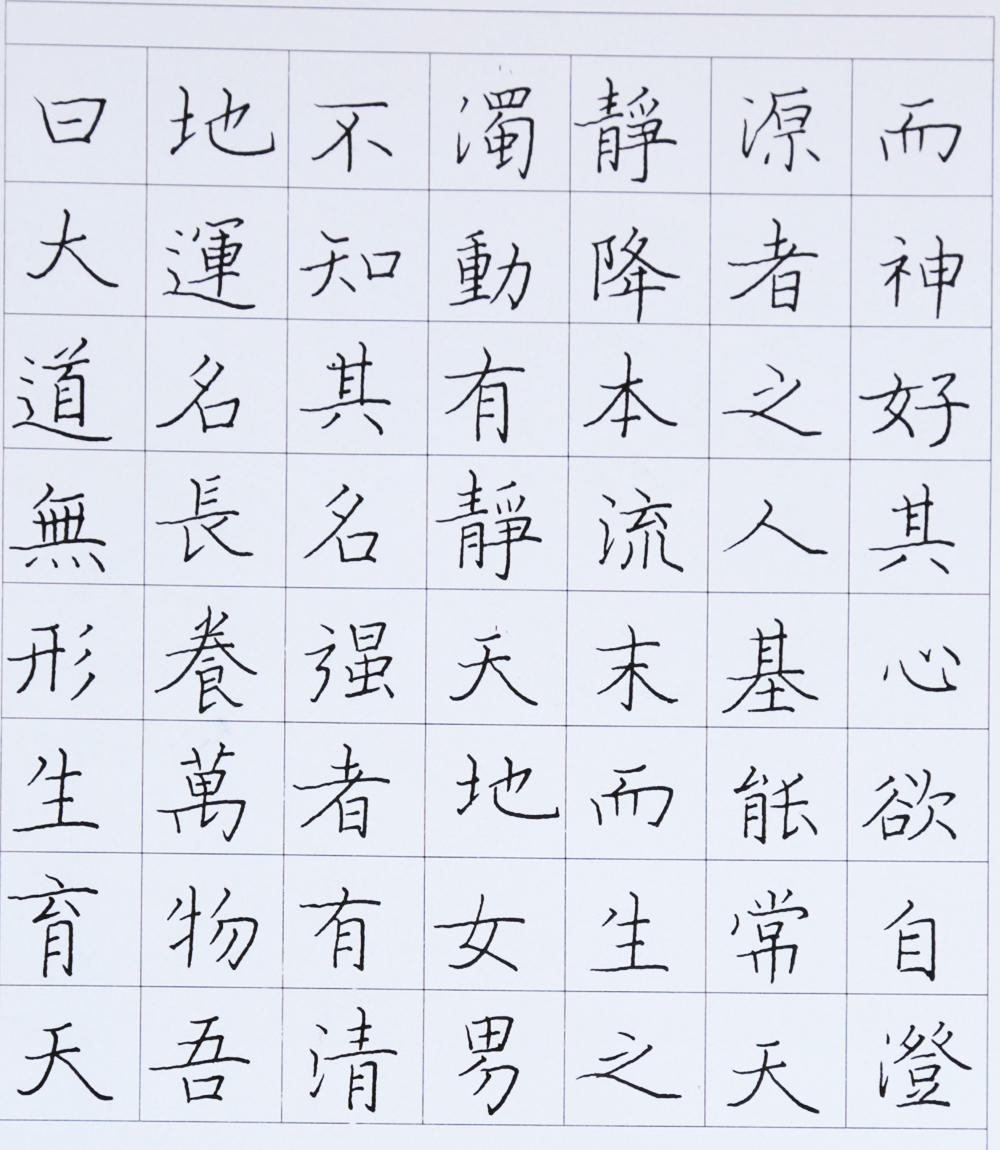 曰大道無形生育天
地運名長養萬物吾
不知其名强者有清
濁動有靜天地女男
靜降本流末而生之
源者之人基能常天
而神好其心欲自澄